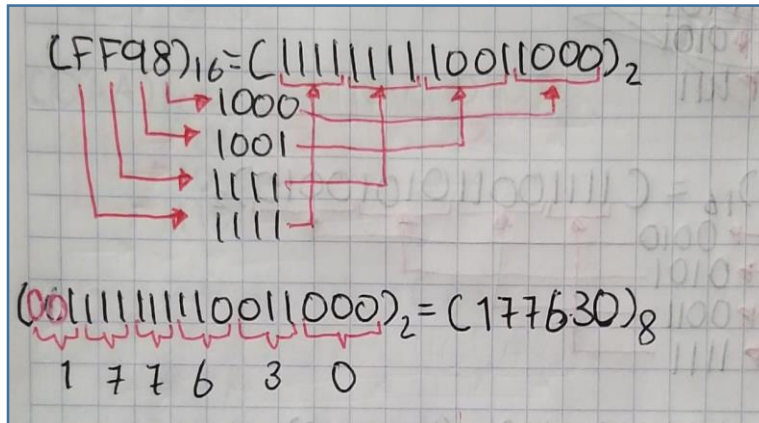 (FF98)₁₆=(1111111110011000)₂
1000
1001
1111
1111
(001111111110011000)₂=(177630)₈
1 7 7 6 3 0